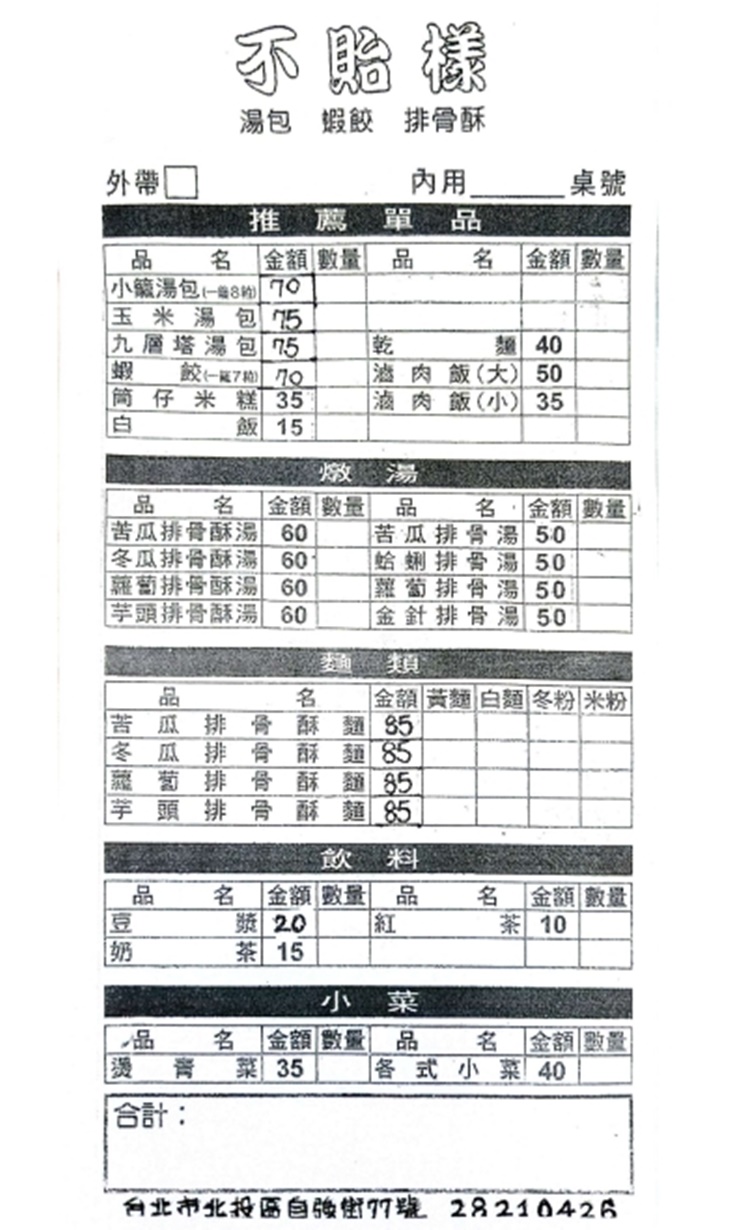 不貽樣
湯包 蝦餃 排骨酥
外帶□ 內用______桌號
推薦單品
品名 金額 數量 品名 金額 數量
小籠湯包(一籠8粒) 70
玉米湯包 75
九層塔湯包 75 乾麵 40
蝦餃(一籠7粒) 70 滷肉飯(大) 50
筒仔米糕 35 滷肉飯(小) 35
白飯 15
燉湯
品名 金額 數量 品名 金額 數量
苦瓜排骨酥湯 60 苦瓜排骨湯 50
冬瓜排骨酥湯 60 蛤蜊排骨湯 50
蘿蔔排骨酥湯 60 蘿蔔排骨湯 50
芋頭排骨酥湯 60 金針排骨湯 50
麵類
品名 金額 黃麵 白麵 冬粉 米粉
苦瓜排骨酥麵 85
冬瓜排骨酥麵 85
蘿蔔排骨酥麵 85
芋頭排骨酥麵 85
飲料
品名 金額 數量 品名 金額 數量
豆漿 20 紅茶 10
奶茶 15
小菜
品名 金額 數量 品名 金額 數量
燙青菜 35 各式小菜 40
合計：
台北市北投區自強街77號 28210426